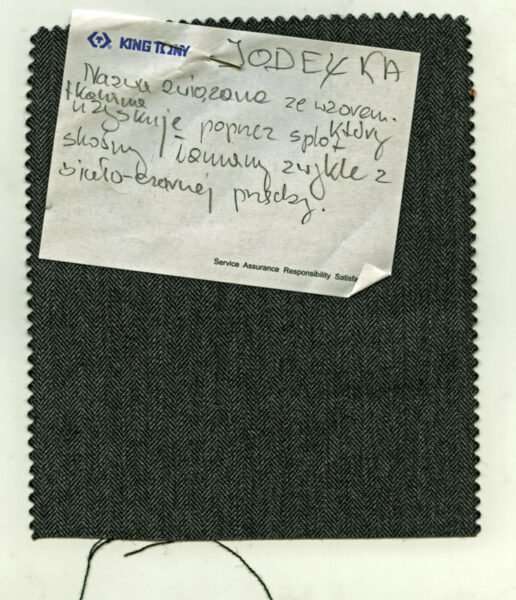 KING TONY
JODEŁKA
Nazwa związana ze wzorem.
tkanina
uzyskuje poprzez splot który
skośny łamany zwykle z
biało-czarnej przędzy.
Service Assurance Responsibility Satisfa